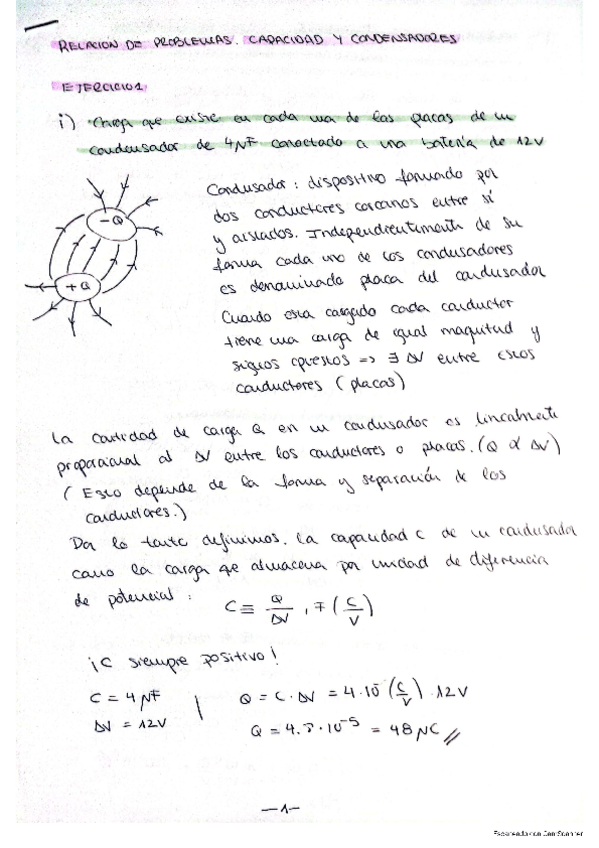 RELACIÓN DE PROBLEMAS. CAPACIDAD Y CONDENSADORES
EJERCICIO 1
i) Carga que existe en cada una de las placas de un
condensador de 4μF conectado a una batería de 12V
Condusador: dispositivo formado por
dos conductores cercanos entre sí
y aislados. Independientemente de su
forma cada uno de los condusadores
es denominado placa del condusador
Cuando esta cargado cada conductor
tiene una carga de igual magnitud y
signos opuestos => ∃ ΔV entre estos
conductores (placas)
-Q
+Q
La cantidad de carga Q en un condusador es linealmente
proporcional al ΔV entre los conductores o placas. (Q α ΔV)
(Esto depende de la forma y separación de los
conductores.)
Por lo tanto definimos, la capacidad C de un condusador
como la carga que almacena por unidad de diferencia
de potencial: C ≡ Q/ΔV , F (C/V)
¡C siempre positivo!
C = 4μF | Q = C · ΔV = 4·10 (C/V) · 12V
ΔV = 12V
Q = 4.8·10^-5 = 48μC //
—1—
Escaneado con CamScanner